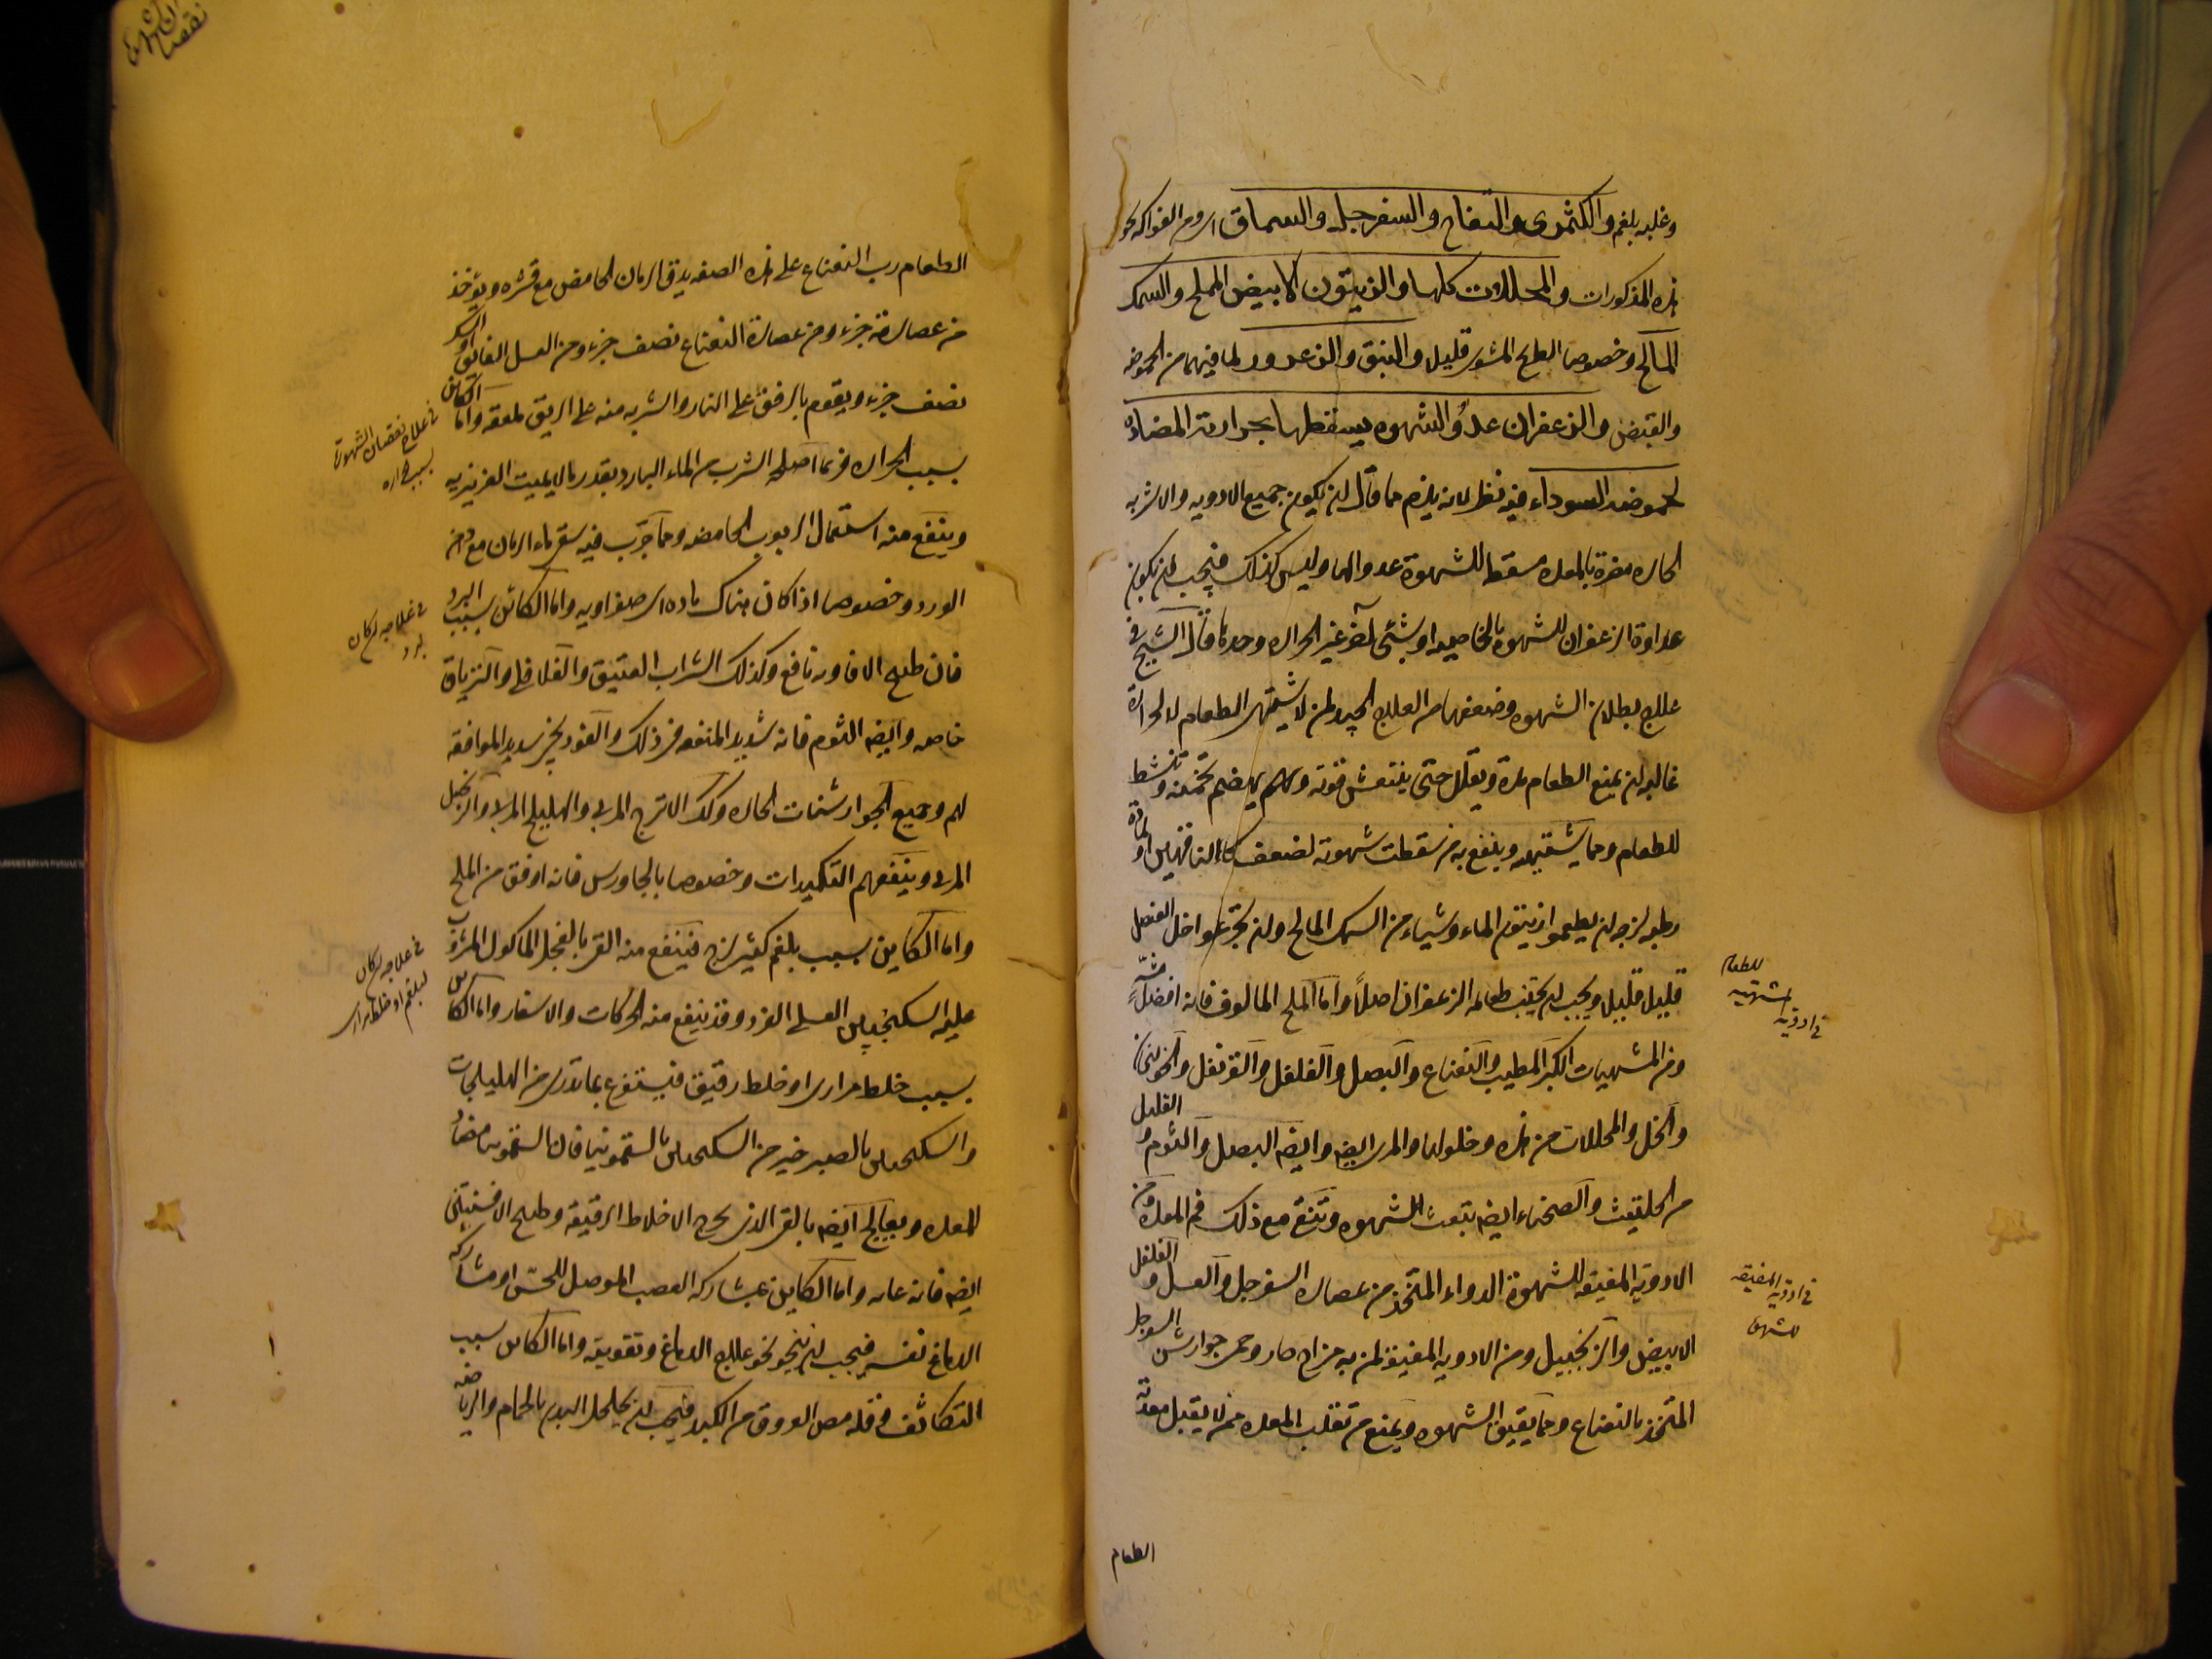 وغلبه بلغم والكمثرى والتفاح والسفرجل والسماق اى ومن الفواكه نحو
هذه المذكورات والمخللات كلها والزيتون الابيض المملح والسمك
المالح وخصوصا الطلع المشوى قليلا والنبق والزعرور لما فيهما من الحموضه
والقبض والزعفران عدو الشهوه يسقطها بحرارته المضاده
لحموضه السوداء فيه نظر لانه يلزم مما قال ان يكون جميع الادويه والاشربه
الحاره مضرة بالمعده مسقطه للشهوة عدوا لها وليس كذلك فيجب ان يكون
عداوة الزعفران للشهوه بالخاصيه او بشئ آخر غير الحراره وحدها قال الشيخ فى
علاج بطلان الشهوه وضعفها من العلاج الجيد لمن لا يشتهى الطعام لا لحرارة
غالبه ان يمنع الطعام مدة ويقلل حتى ينتعش قوته ويهضم تخمته وتنشط
للطعام ومما يشتهيه وينفع به من سقطت شهوته لضعف كالناقهين او لمادة
رطبه لزجه ان يطعموا زيتون الماء وشياء من السمك المالح وان يجرعوا خل العنصل
قليل قليل ويجب ان يجتنب طعامه الزعفران اصلاً واما الملح المالوف فانه افضل مشه
ومن المشهيات الكبر المطيب والنعناع والبصل والفلفل والقرنفل والخولنجان
والخل والمخللات من هذه وخلولها والمرى ايضه وايضه البصل والثوم و القليل
من الحلتيت والصحناء ايضه تبعث الشهوه وتنقى مع ذلك فم المعده ومن
الادويه المفيقه للشهوة الدواء المتخذ من عصاره السفرجل والعسل و الفلفل
الابيض والزنجبيل ومن الادويه المفيقة لمن به مزاج حار وحمى جوارشن السفرجل
المتخذ بالنعناع ومما يفيق الشهوه ويمنع من تقلب المعده ممن لا يقبل معدته
للطعام
المشتهيه
فى ادويه
فى ادويه المفيقه
للشهوة
الطعام
الطعام رب النعناع على هذه الصفه يدق الرمان الحامض مع قشره ويؤخذ
من عصارته جزء ومن عصارة النعناع نصف جزء ومن العسل الفائق او السكر
نصف جزء ويقوم بالرفق على النار والشربه منه على الريق ملعقه واما الكاين
بسبب الحراره فربما اصلحه الشرب من الماء البارد بقدر ما لا يميت الغريزيه
وينفع منه استعمال الربوب الحامضه ومما جرب فيه سقى ماء الرمان مع دهن
الورد وخصوصا اذا كان هناك ماده اى صفراويه واما الكاين بسبب البرد
فان طبيخ الافاويه نافع وكذلك الشراب العتيق والفلافلى والترياق
خاصه وايضه الثوم فانه شديد المنفعه فى ذلك والفودنجى شديد الموافقه
لهم وجميع الجوارشنات الحاره وكذا الاترج المربى والهليلج المربى والزنجبيل
المربى وينفعهم التكميدات وخصوصا بالجاورس فانه اوفق من الملح
واما الكاين بسبب بلغم كثير لزج فينفع منه القى بالفجل الماكول المشروب
عليه السكنجبين العسلى المفرد وقد ينفع منه الحركات والاسفار واما الكاين
بسبب خلط مرارى او خلط رقيق فيستفرغ بما تدرى من الهليلجات
والسكنجبين بالصبر خير من السكنجبين بالسقمونيا فان السقمونيا مضاد
للمعده ويعالج ايضه بالقى الذى يخرج الاخلاط الرقيقه وطبيخ الافسنتين
ايضه فانه غايه واما الكاين بمشاركه العصب الموصل للحس او مشاركه
الدماغ نفسه فيجب ان ينحو نحو علاج الدماغ وتقويته واما الكاين بسبب
التكاثف وقله مص العروق من الكبد فيجب ان يخلخل البدن بالحمام والرياضه
فى علاج نقصان الشهوة
بسبب حراره
فى علاجه ان كان
لبرد
فى علاجه ان كان
لبلغم او خلط مرارى